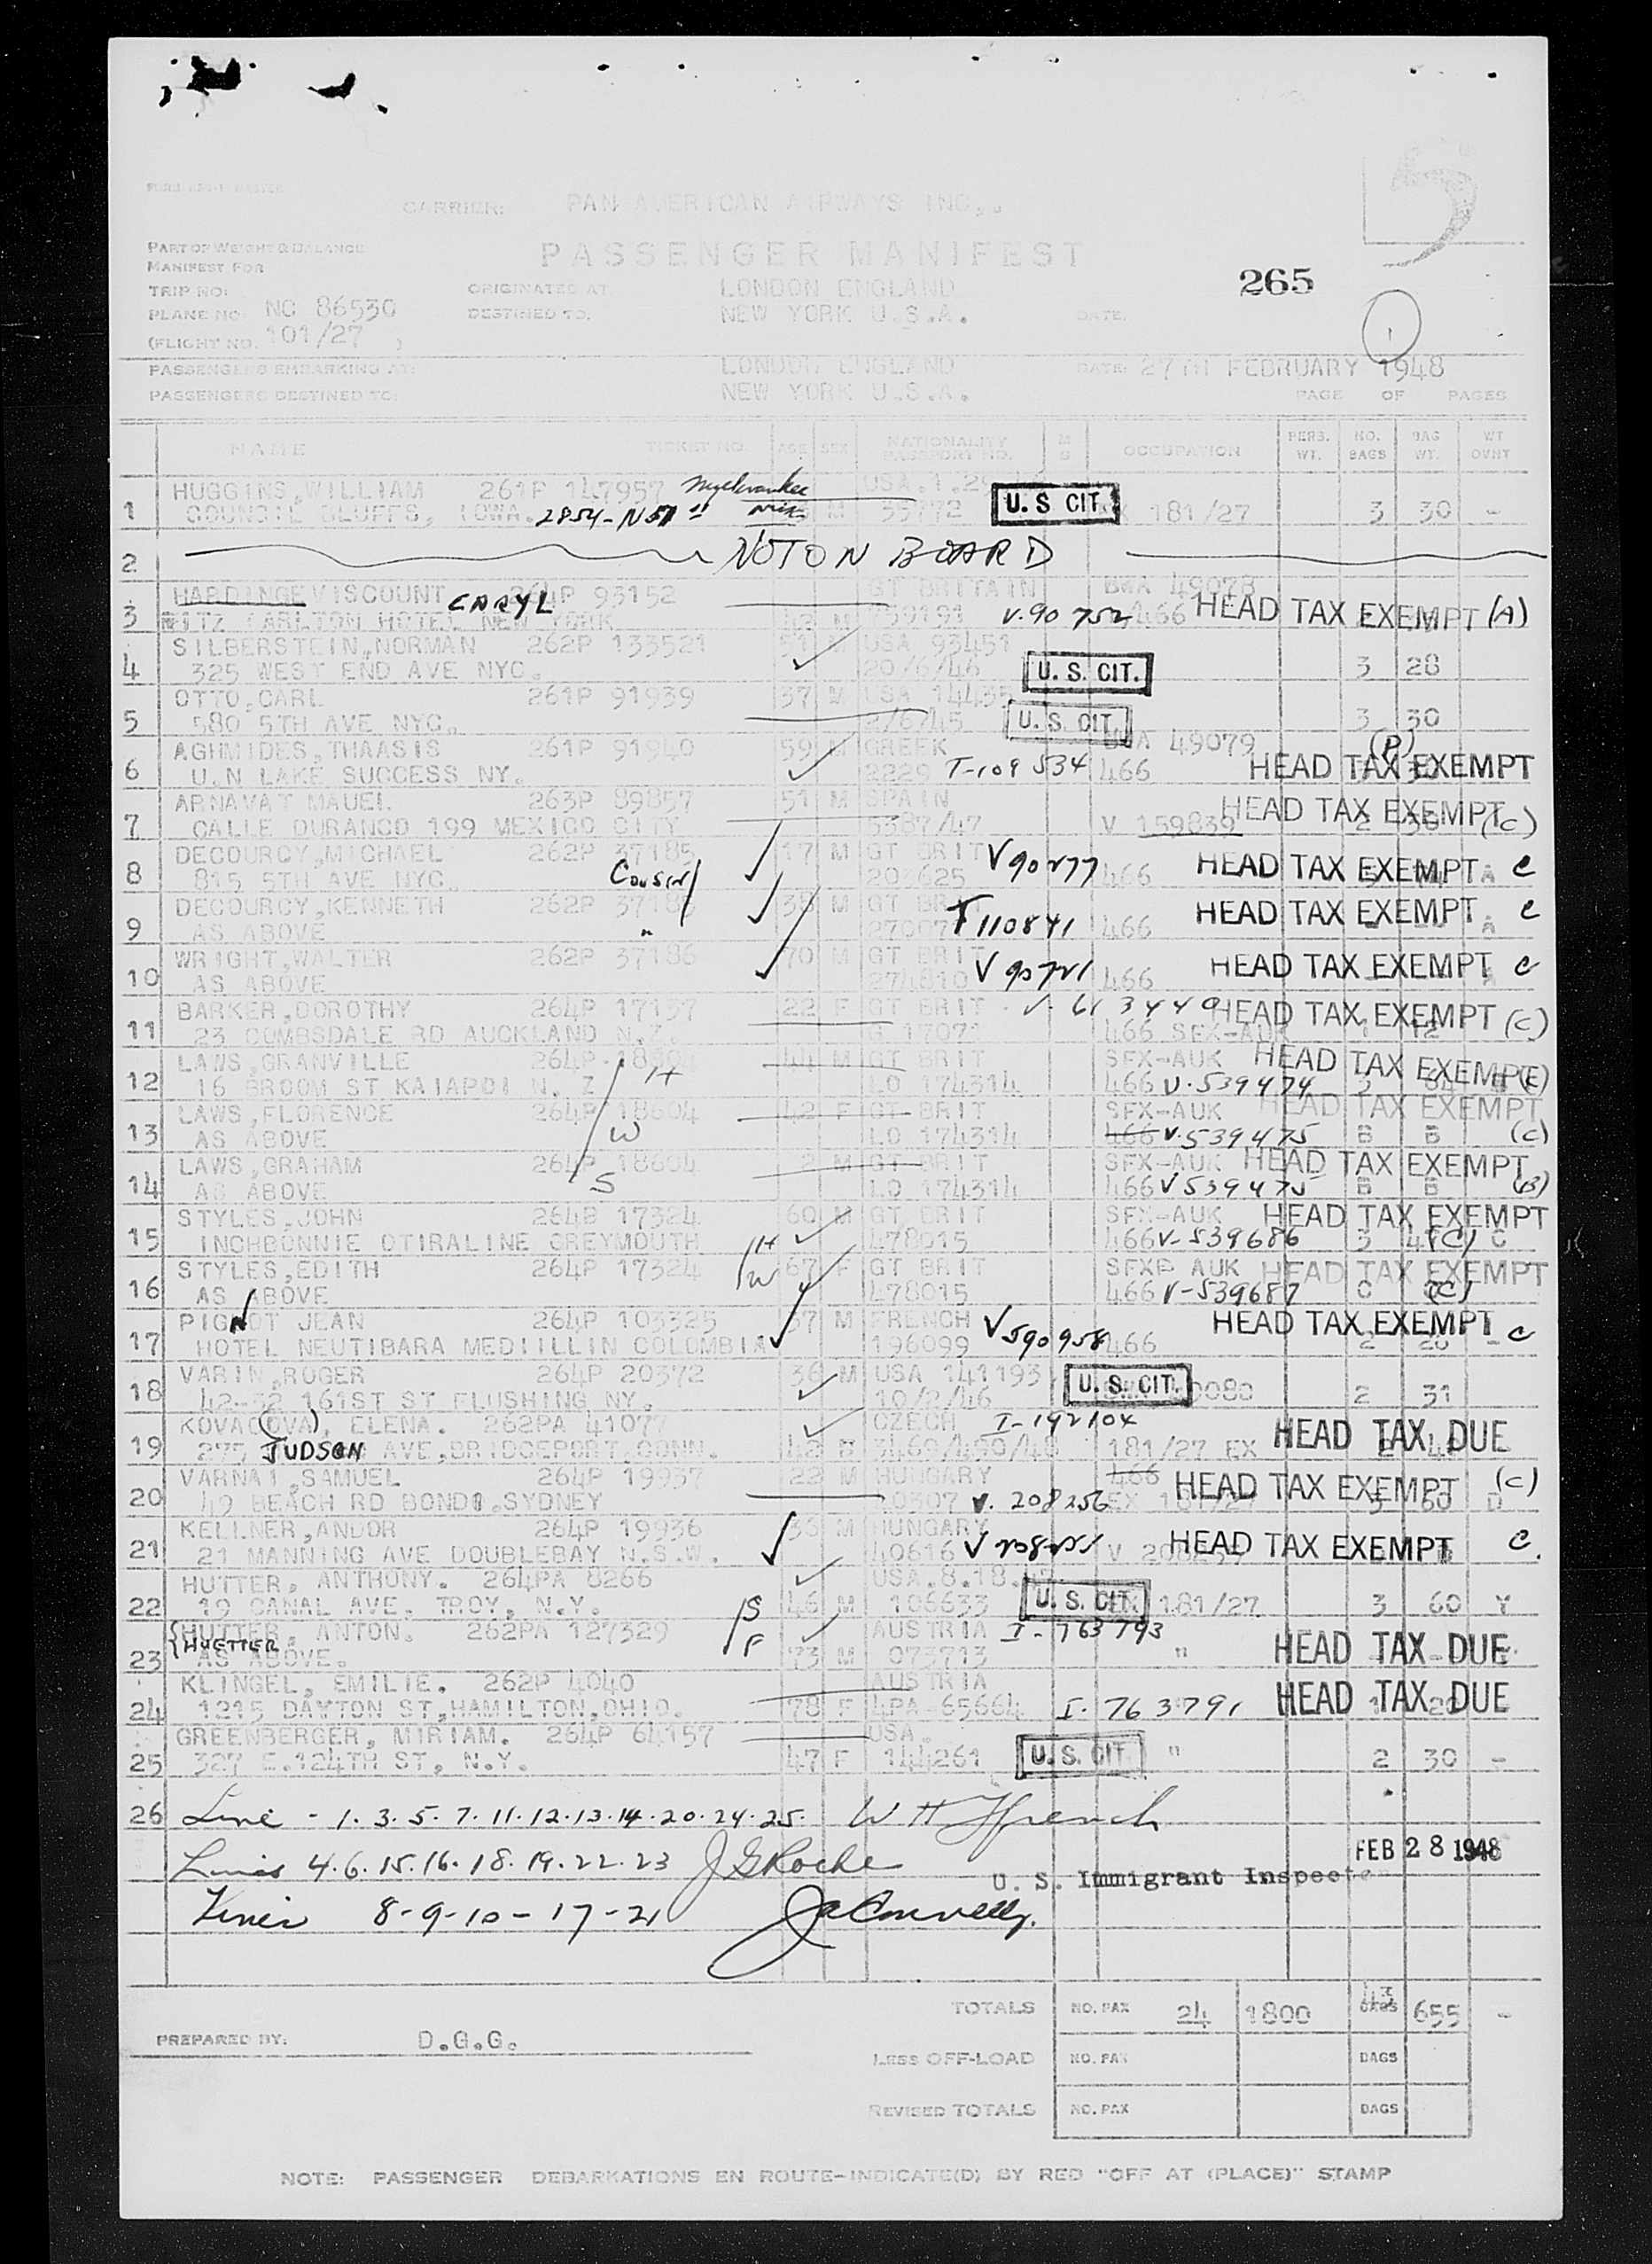 5
CARRIER: PAN AMERICAN AIRWAYS INC.
PART OF WEIGHT & BALANCE
MANIFEST FOR
PASSENGER MANIFEST
265
TRIP NO:
ORIGINATED AT LONDON ENGLAND
PLANE NO NC 86530
DESTINED TO. NEW YORK U.S.A. DATE.
1
(FLIGHT NO. 101/27 )
PASSENGERS EMBARKING AT: LONDON ENGLAND DATE: 27TH FEBRUARY 1948
PASSENGERS DESTINED TO: NEW YORK U.S.A. PAGE OF PAGES
NAME TICKET NO. AGE SEX NATIONALITY PASSPORT NO. M S OCCUPATION PERS. WT. NO. BAGS BAG WT. WT OVNT
1 HUGGINS, WILLIAM 261P 147957
COUNCIL BLUFFS, IOWA. 2854-N 51 M U.S CIT. 181/27 3 30 -
2 NOT ON BOARD
3 HARDINGE VISCOUNT CARYL 264P 93152 GT BRITAIN BWA 49078
RITZ CARLTON HOTEL NEW YORK M V.90752 466 HEAD TAX EXEMPT (A)
4 SILBERSTEIN, NORMAN 262P 133521 51 M USA 93451
325 WEST END AVE NYC. 20/6/46 U. S. CIT. 3 28
5 OTTO, CARL 261P 91939 37 M USA 14435
580 5TH AVE NYC. 2/6/45 U. S. CIT. 3 30
6 AGHNIDES, THAASIS 261P 91940 59 M GREEK 49079 (P)
U.N LAKE SUCCESS NY. 2229 T-109534 466 HEAD TAX EXEMPT
7 ARNAVAT MAUEL 263P 89857 51 M SPAIN HEAD TAX EXEMPT
CALLE DURANGO 199 MEXICO CITY 5387/47 V 159839 (C)
8 DECOURCY, MICHAEL 262P 37185 17 M GT BRIT V90277
815 5TH AVE NYC Cousin 202625 466 HEAD TAX EXEMPT C
9 DECOURCY, KENNETH 262P 37185 38 M GT BRIT
AS ABOVE " T110841 466 HEAD TAX EXEMPT C
10 WRIGHT, WALTER 262P 37186 70 M GT BRIT
AS ABOVE 274810 466 HEAD TAX EXEMPT C
11 BARKER, DOROTHY 264P 17137 22 F GT BRIT V-613449 HEAD TAX EXEMPT (C)
23 COMBSDALE RD AUCKLAND N.Z. 466 SFX-AUK 1 12
12 LAWS, GRANVILLE 264P 18604 H 44 M GT BRIT SFX-AUK HEAD TAX EXEMPT
16 BROOM ST KAIAPOI N. Z LO 174314 466 V.539474
13 LAWS, FLORENCE 264P 18604 42 F GT BRIT SFX-AUK HEAD TAX EXEMPT
AS ABOVE W LO 174314 466 V.539475 B B (C)
14 LAWS, GRAHAM 264P 18604 2 M GT BRIT SFX-AUK HEAD TAX EXEMPT
AS ABOVE S LO 174314 466 B B (B)
15 STYLES, JOHN 264P 17324 60 M GT BRIT SFX-AUK HEAD TAX EXEMPT
INCHBONNIE OTIRALINE GREYMOUTH H 478015 466 V-539686 3 (C)
16 STYLES, EDITH 264P 17324 W 67 F GT BRIT SFXP AUK HEAD TAX EXEMPT
AS ABOVE 478015 466 V-539687 C (C)
17 PIGNOT JEAN 264P 103325 37 M FRENCH V590958
HOTEL NEUTIBARA MEDIILLIN COLOMBIA 196099 466 HEAD TAX EXEMPT C
18 VARIN, ROGER 264P 20372 36 M USA 141193
42-32 161ST ST FLUSHING NY. 10/2/46 U. S. CIT. 2 31
19 KOVAC(OVA), ELENA. 262PA 41077 CZECH I-192104
275 JUDSON AVE, BRIDGEPORT, CONN. 181/27 EX HEAD TAX DUE
20 VARNAI, SAMUEL 264P 19937 22 M HUNGARY 466 HEAD TAX EXEMPT (C)
49 BEACH RD BONDI, SYDNEY V. 208256 60 D
21 KELLNER, ANDOR 264P 19936 M HUNGARY
21 MANNING AVE DOUBLEBAY N.S.W. 40616 HEAD TAX EXEMPT C.
22 HUTTER, ANTHONY. 264PA 8266 USA.8.18.
19 CANAL AVE. TROY, N.Y. S 46 M 106633 U. S. CIT. 181/27 3 60 Y
23 HUTTER, ANTON. 262PA 127329 F AUSTRIA I-763793
HUETTER AS ABOVE. 73 M 073713 " HEAD TAX DUE
24 KLINGEL, EMILIE. 262P 4040 AUSTRIA
1215 DAYTON ST, HAMILTON, OHIO. 78 F 4PA-65664 I-763791 HEAD TAX DUE
25 GREENBERGER, MIRIAM. 264P 64157 USA.
327 E.124TH ST, N.Y. 47 F 144261 U. S. CIT " 2 30 -
26 Line - 1. 3. 5. 7. 11. 12. 13. 14. 20. 24. 25. W H Ffrench
FEB 28 1948
Lines 4. 6. 15. 16. 18. 19. 22. 23 J G Roche
U. S. Immigrant Inspector
Lines 8-9-10-17-21 Ja Connelly.
TOTALS NO. PAX 24 1800 43 BAGS 655 -
PREPARED BY: D.G.G.
LESS OFF-LOAD NO. PAX BAGS
REVISED TOTALS NO. PAX BAGS
NOTE: PASSENGER DEBARKATIONS EN ROUTE-INDICATE(D) BY RED "OFF AT (PLACE)" STAMP